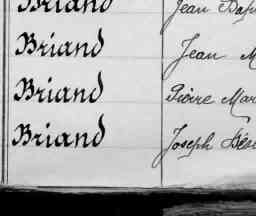 Briand Jean
Briand Jean
Briand Pierre Mar
Briand Joseph